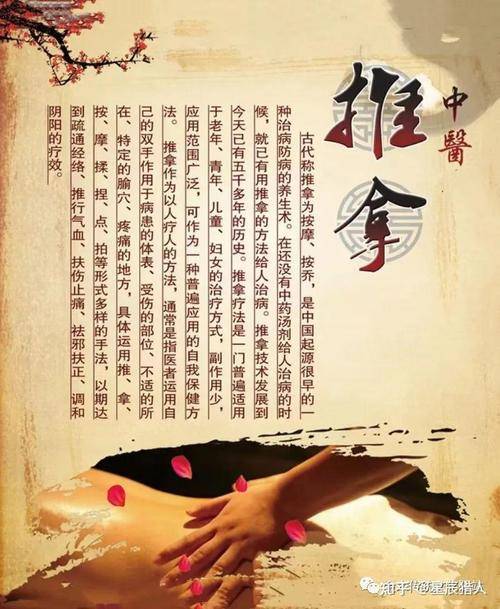 中醫
推拿
古代称推拿为按摩、按乔，是中国起源很早的一
种治病防病的养生术。在还没有中药汤剂给人治病的时
候，就已有用推拿的方法给人治病。推拿技术发展到
今天已有五千多年的历史。推拿疗法是一门普遍适用
于老年、青年、儿童、妇女的治疗方式，副作用少，
应用范围广泛，可作为一种普遍应用的自我保健方
法。 推拿作为以人疗人的方法，通常是指医者运用自
己的双手作用于病患的体表、受伤的部位、不适的所
在、特定的腧穴、疼痛的地方，具体运用推、拿、
按、摩、揉、捏、点、拍等形式多样的手法，以期达
到疏通经络、推行气血、扶伤止痛、祛邪扶正、调和
阴阳的疗效。
知乎 @星辰猎人